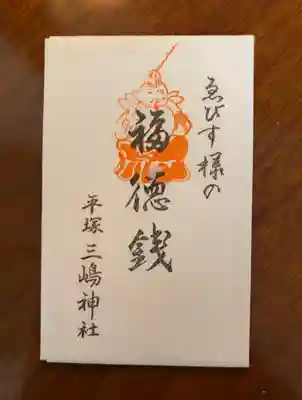 ゑびす様の
福徳銭
平塚三嶋神社